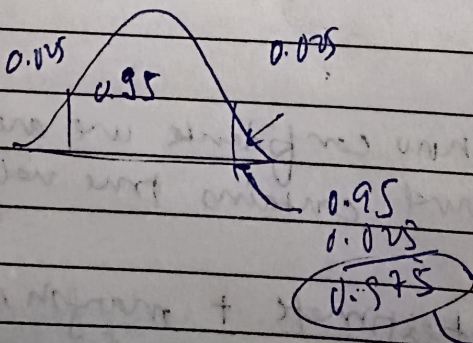 0.025
0.025
0.95
0.95
0.025
0.975